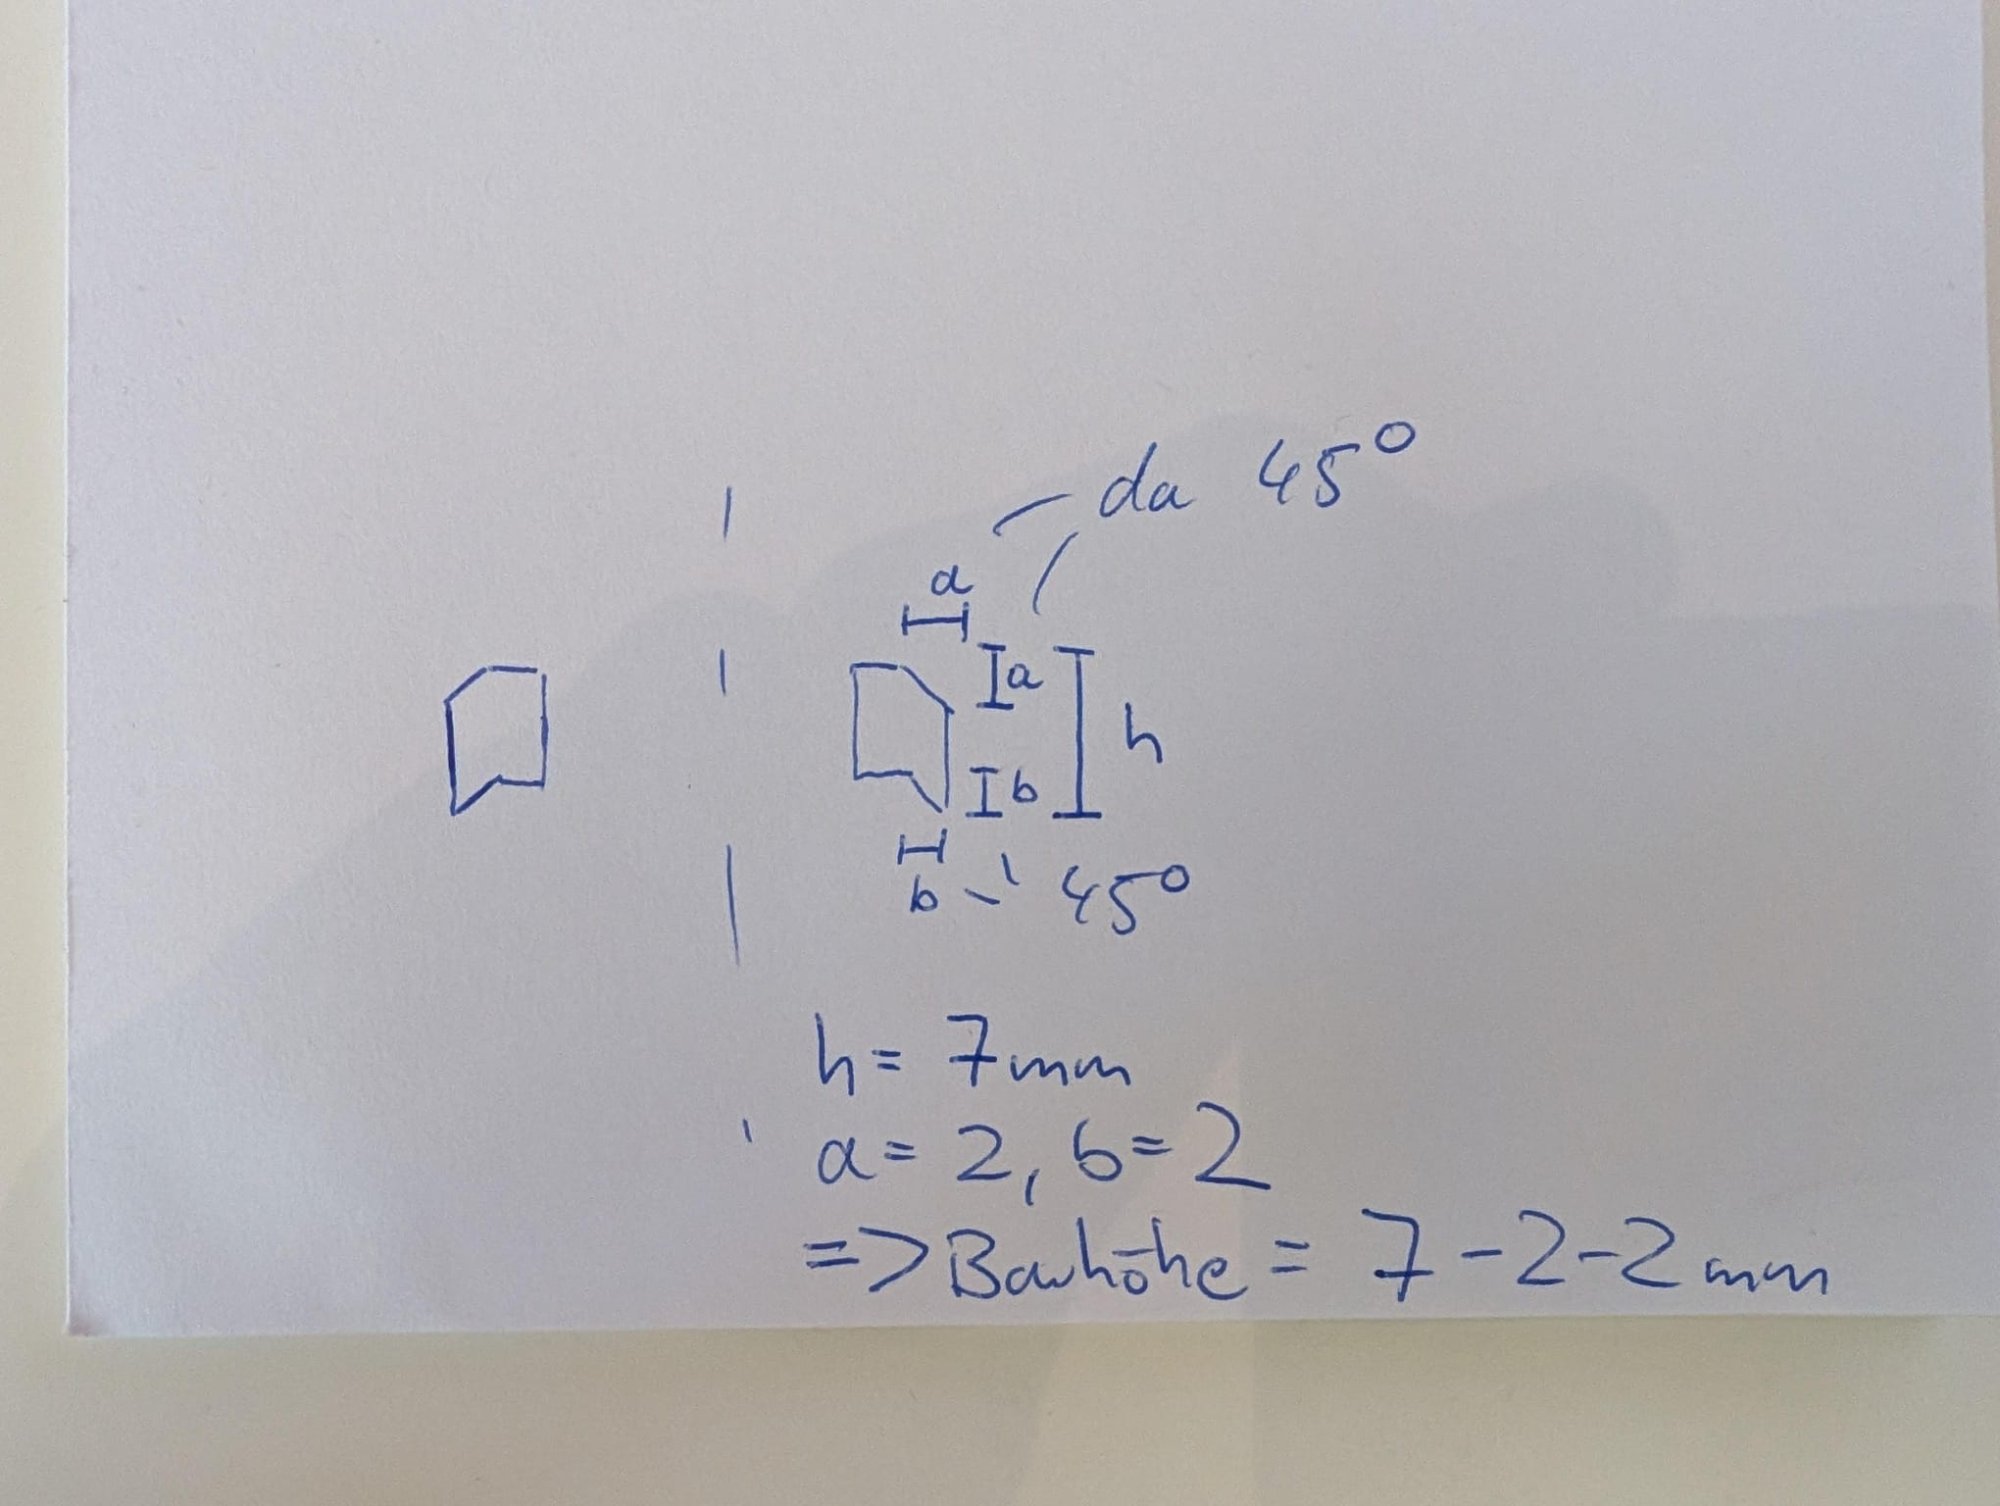 da 45°
a
a
h
b
b 45°
h = 7mm
a = 2, b = 2
=> Bauhöhe = 7 - 2 - 2 mm